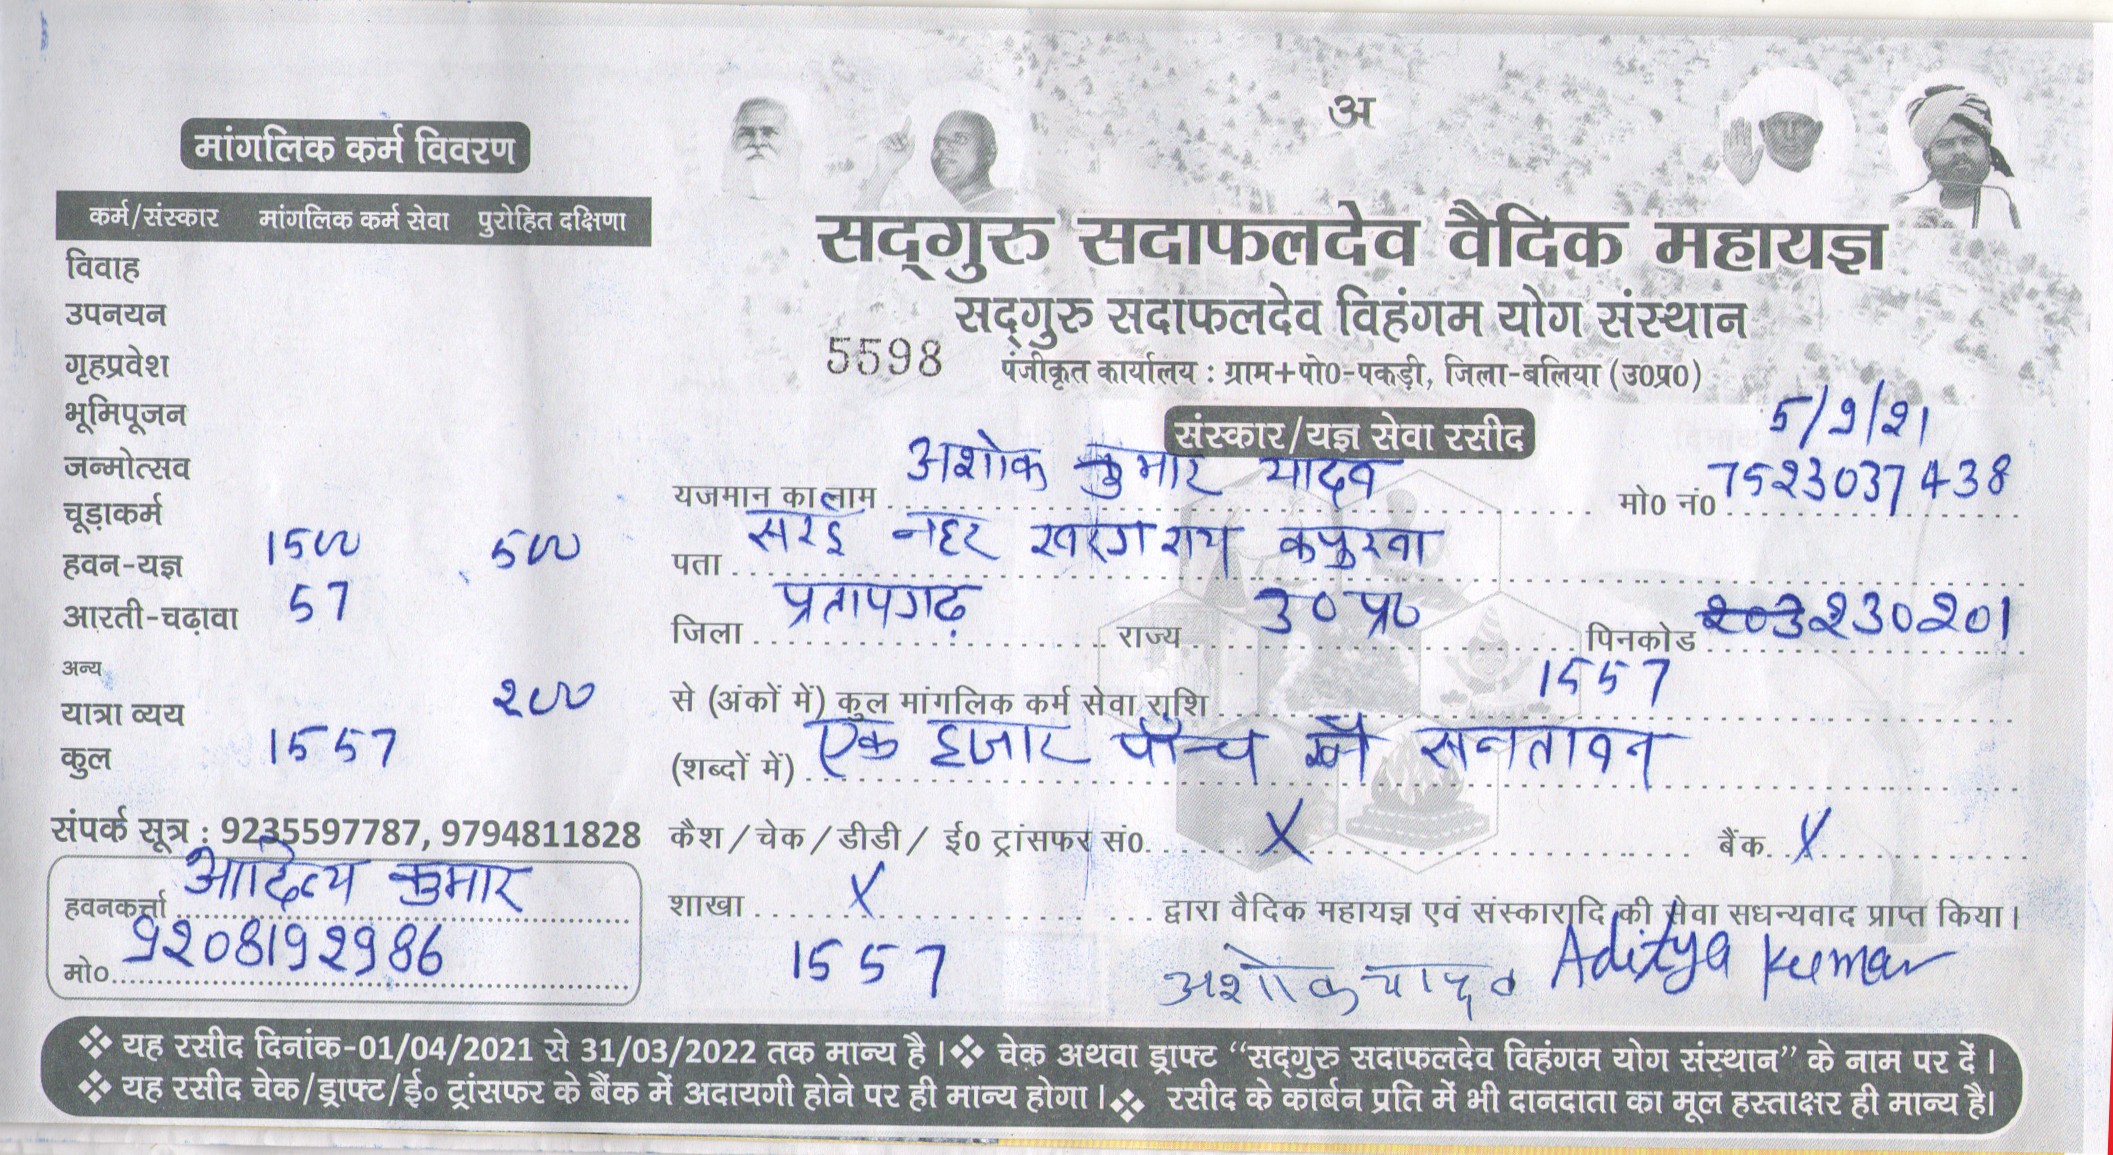 मांगलिक कर्म विवरण
कर्म/संस्कार मांगलिक कर्म सेवा पुरोहित दक्षिणा
विवाह
उपनयन
गृहप्रवेश
भूमिपूजन
जन्मोत्सव
चूड़ाकर्म
हवन-यज्ञ 1500 500
आरती-चढ़ावा 57
अन्य
यात्रा व्यय २00
कुल 1557
संपर्क सूत्र : 9235597787, 9794811828
हवनकर्त्ता आदित्य कुमार
मो०. 9२08192986
अ
सद्गुरु सदाफलदेव वैदिक महायज्ञ
सद्गुरु सदाफलदेव विहंगम योग संस्थान
5598 पंजीकृत कार्यालय : ग्राम+पो0-पकड़ी, जिला-बलिया (उ0प्र0)
संस्कार/यज्ञ सेवा रसीद 5/9/२1
यजमान का नाम अशोक कुमार यादव मो0 नं0 7523037438
पता नहर कपुरवा
जिला प्रतापगढ़ राज्य उ0प्र0 पिनकोड २30२01
से (अंकों में) कुल मांगलिक कर्म सेवा राशि 1557
(शब्दों में) एक हजार पाँच सौ सनतावन
कैश/चेक/डीडी/ ई0 ट्रांसफर सं0. X बैंक X
शाखा X द्वारा वैदिक महायज्ञ एवं संस्कारादि की सेवा सधन्यवाद प्राप्त किया।
1557 अशोक यादव Aditya Kumar
❖ यह रसीद दिनांक-01/04/2021 से 31/03/2022 तक मान्य है।❖ चेक अथवा ड्राफ्ट “सद्गुरु सदाफलदेव विहंगम योग संस्थान” के नाम पर दें।
❖ यह रसीद चेक/ड्राफ्ट/ई० ट्रांसफर के बैंक में अदायगी होने पर ही मान्य होगा।❖ रसीद के कार्बन प्रति में भी दानदाता का मूल हस्ताक्षर ही मान्य है।